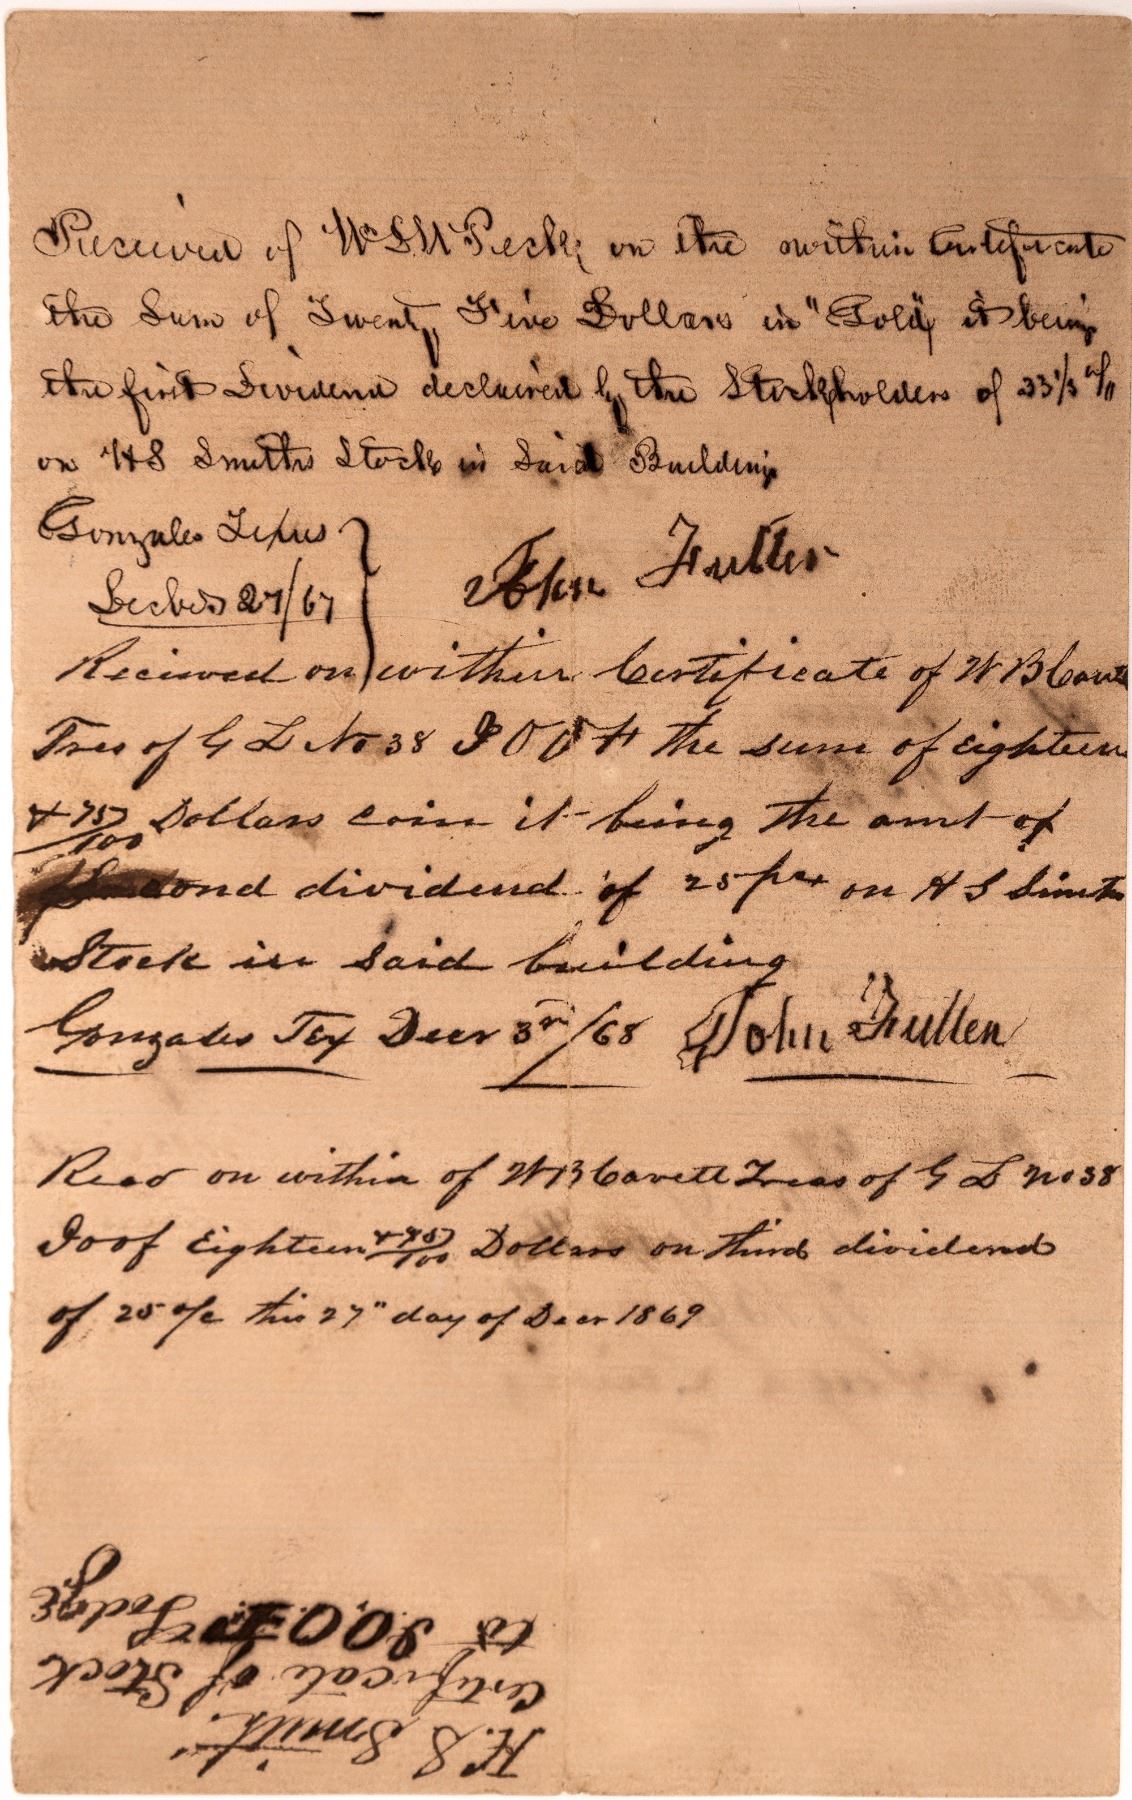 Received of W S W Peck, on the within Certificate
the Sum of Twenty Five Dollars in "Gold", it being
the first Dividend declaired by the Stockholders of 33 1/3 %
on H S Smiths Stock in Said Building
Gonzales Texas
Decber 27/67
John Fuller
Reciived on within Certificate of W B Cavett
Tres of G L No 38 I O O F the sum of Eighteen
+ 75/100 Dollars coin it being the amt of
Second dividend of 25 per on H S Smiths
Stock in said building
Gonzales Tex Decr 3rd/68 John Fuller
Recd on within of W B Cavett Treas of G L No 38
Ioof Eighteen + 75/100 Dollars on third dividend
of 25 % this 27" day of Decr 1869
H. S Smith.
Certificate of Stock
to I.O.O.F. Lodge